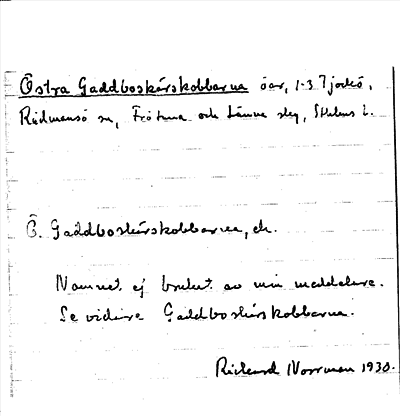 Östra Gaddboskärskobbarna öar, 1-3 Tjockö,
Rådmansö sn, Frötuna och Länna slg, Sthlms l.
Ö. Gaddboskärskobbarna, ek.
Namnet ej brukat av min meddelare.
Se vidare Gaddboskärskobbarna.
Rickard Norrman 1930.